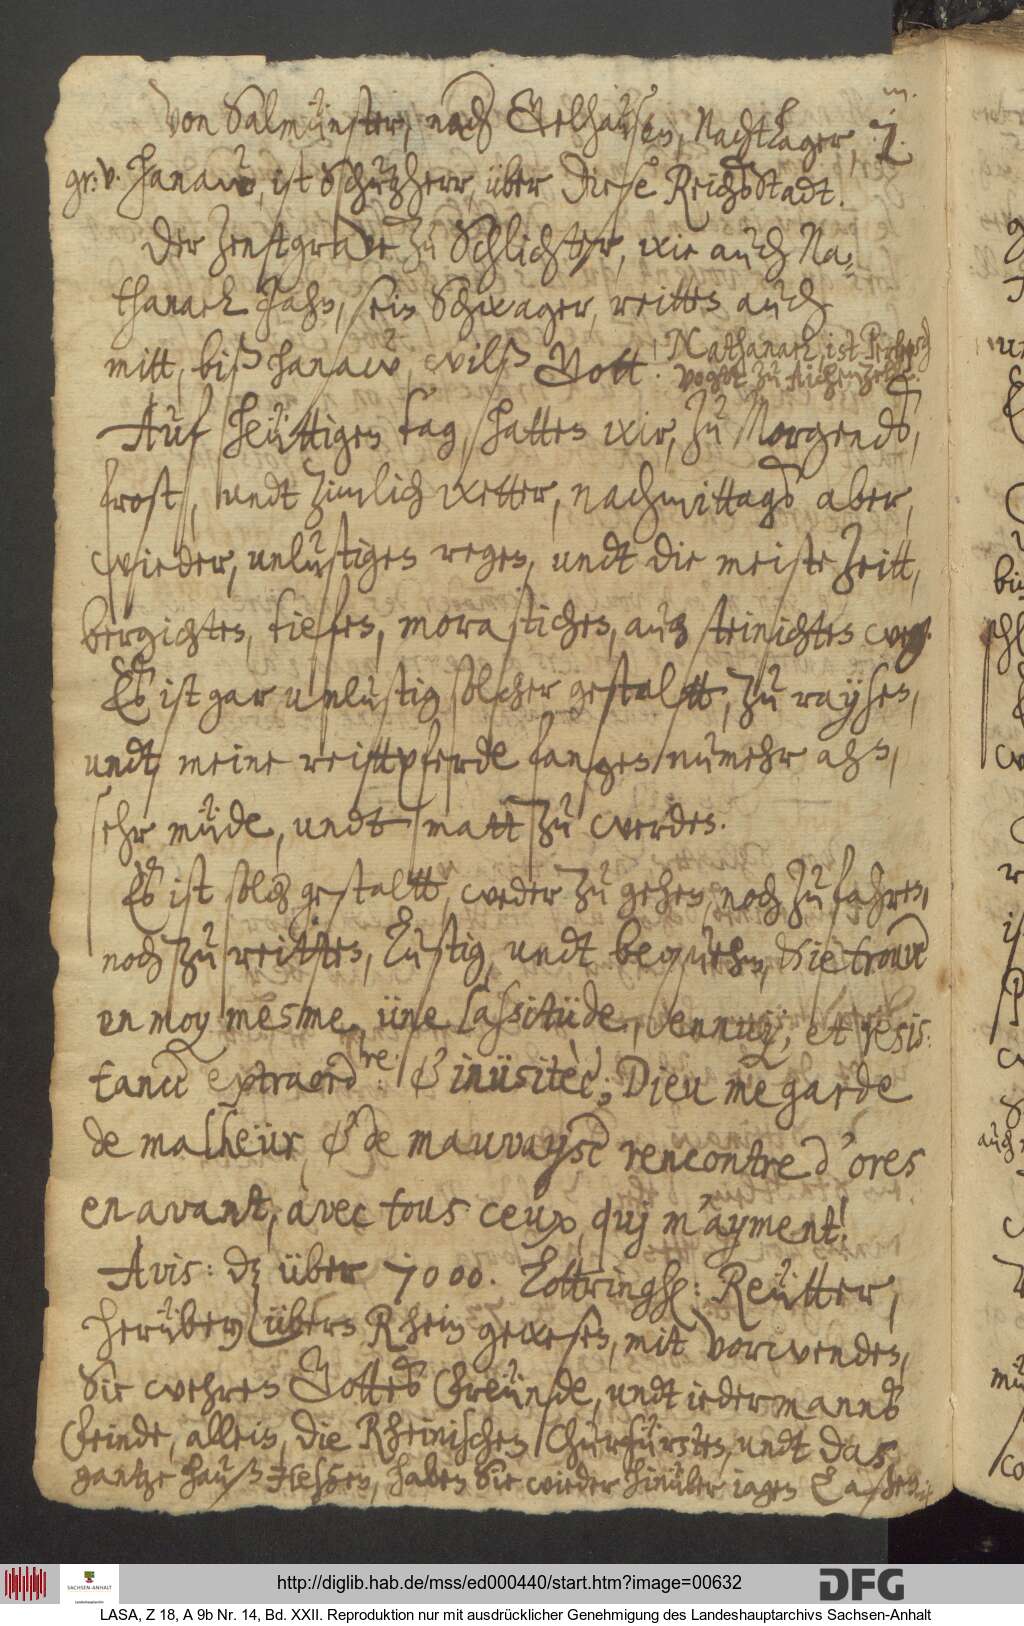 Von Salmünster, nach Gelhausen, Nachtlager, 2. m.
gr: v. Hanaw, ist Schutzherr, über diese ReichsStadt.
Der Zentgrave zu Schlichter, wie auch Na-
thanael Jahn, sein Schwager, reitten auch
mitt, biß Hanaw, wilß Gott.
Nathanael, ist
Vogt zu
Auf heüttigen tag, hatten wir, zu Morgends,
frost, undt zimlich wetter, nachmittags aber,
wieder, unlustigen regen, undt die meiste Zeitt,
bergichten, tiefen, morastichen, auch steinichten weg.
Es ist gar unlustig solcher gestaltt, zu raysen,
undt meine reittpferde fangen nunmehr ahn,
sehr müde, undt matt zu werden.
Es ist solch gestaltt, weder zu gehen, noch zu fahren,
noch zu reitten, lustig, undt bequehm, Die trouve
en moy mesme, üne lassitüde, ennuy, et resis:
tance extraordre: & inüsitèe; Dieu me garde
de malheür, & de mauvayse rencontre d'ores
en avant, avec tous ceux, quj m'ayment!
Avis: dz über 7000. Lottringsche: Reütter,
herüber / übern Rhein gewesen, mit vorwenden,
Sie wehren Gottes freünde, undt iedermanns
feinde, allein, die Rheinischen Churfürsten, undt das,
gantze hauß Hessen, haben Sie wieder hinüber iagen laßen
http://diglib.hab.de/mss/ed000440/start.htm?image=00632
SACHSEN-ANHALT
DFG
LASA, Z 18, A 9b Nr. 14, Bd. XXII. Reproduktion nur mit ausdrücklicher Genehmigung des Landeshauptarchivs Sachsen-Anhalt